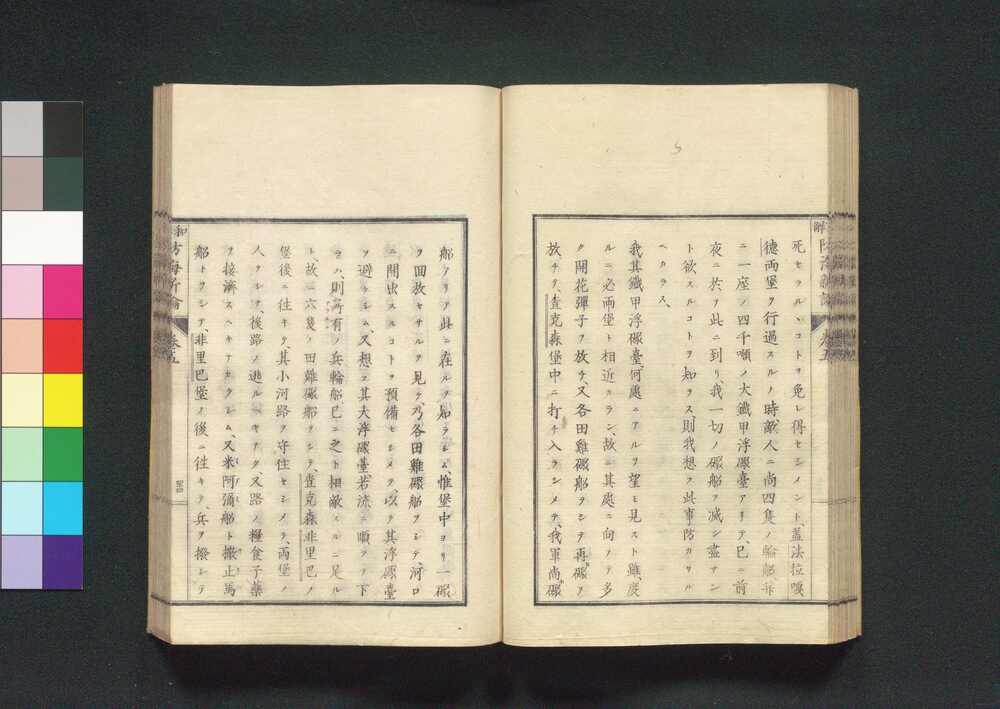 死セラルヽコトヲ免レ得セシメント、蓋法拉嗄
德両堡ヲ行過スルノ時敵人ニ尚四隻ノ輪船并
ニ一座ノ四千噸ノ大鐵甲浮礮臺アリテ、已ニ前
夜ニ於ヲ此ニ到リ、我一切ノ礮船ヲ滅シ盡サン
ト欲スルコトヲ知ヲス、則我想フ此事防カサル
ヘカラス、
我其鐵甲浮礮臺、何處ニアルヲ望ミ見スト雖、度
ルニ必両堡ト相近カラン、故ニ其處ニ向ヲテ多
ク開花彈子ヲ放チ、又各田雞礮船ヲシテ再礮ヲ
放チテ、查克森堡中ニ打チ入ラシメテ、我軍尚礮
船ノリア此ニ在ルヲ知ラシム、惟堡中ヨリ一礮
ヲ回放セサルヲ見テ、乃各田雞礮船ヲシテ、河口
ニ開出スルコトヲ預備セシメヲ、以テ其浮礮臺
ヲ避ケシム、又想フ其大浮礮臺若流ニ順ヲテ下
ラハ、則所有ノ兵輪船已ニ之ト相敵スルニ足ル
ト、故ニ六隻ノ田雞礮船ヲシテ、查克森非里巴ノ
堡後ニ往キテ、其小河路ヲ守住セシメテ、両堡ノ
人ヲシテ、後路ノ逃ルヘキナク又路ノ糧食子藥
ヲ接濟スヘキナカラシム、又米阿彌船ト撒止馬
船トヲシテ、非里巴堡ノ後ニ往キテ、兵ヲ撥シテ